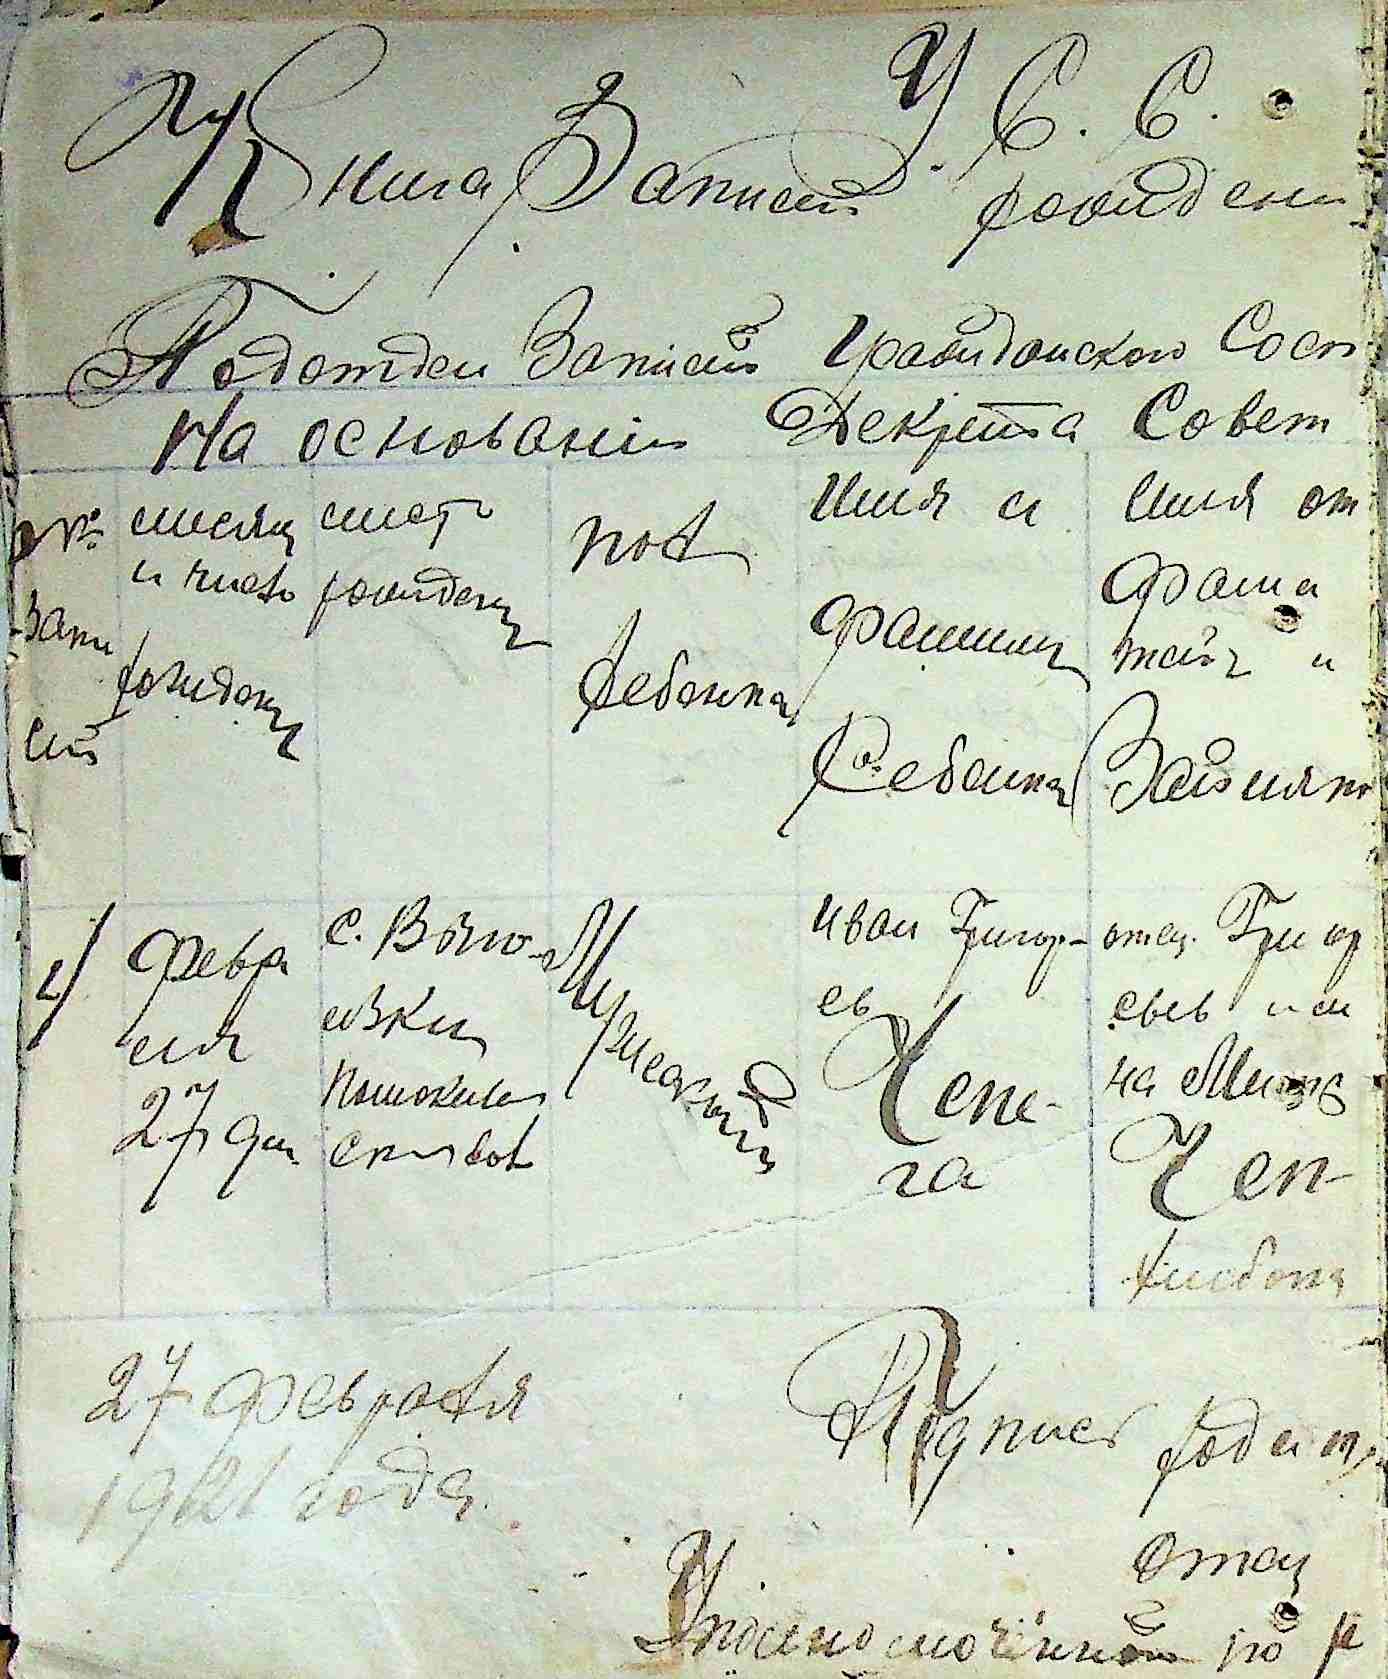 У. С. С.
Книга Записей рождени
Подотдел Записей Гражданского Сост
На основании Декрета Совет
№ Запи сей
месяц и число рождения
место рождения
пол ребенка
Имя и фамилия Ребенка
Имя от фами тель и Занятие
1)
Февра ля 27 дн
с.
Мужской
Иван Григорь- ев Чепе- га
отец Григор ьев
на
Чеп-
хлебопа
27 февраля
1921 года.
Подпись родит
отец
Уполномоченной по